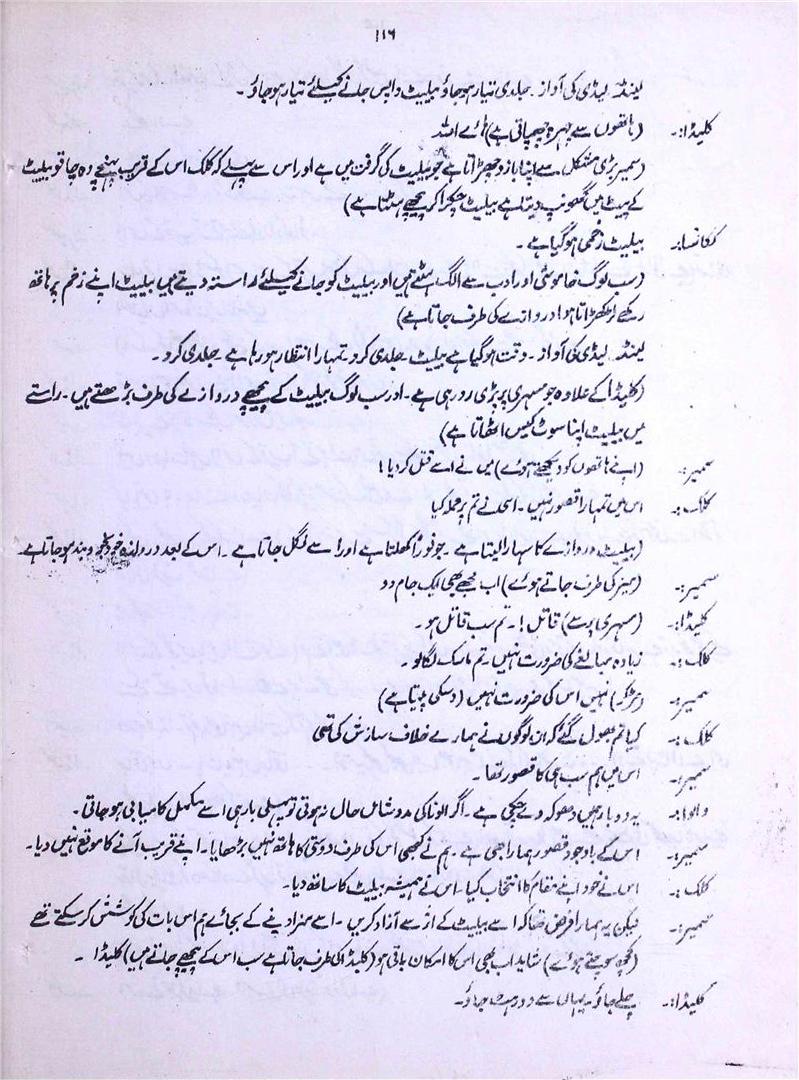 ۱۱۶
لینڈ لیڈی کی آواز۔ جلدی تیار ہو جاؤ بیلیٹ واپس جانے کیلئے تیار ہو جاؤ۔
کلیڈا:۔ (ہاتھوں سے چہرہ چھپاتی ہے) ہائے اللہ
(سمیر بڑی مشکل سے اپنا بازو چھڑاتا ہے جو بیلیٹ کی گرفت میں ہے اور اس سے پہلے کہ کلک اس کے قریب پہنچے وہ چاقو بیلیٹ
کے پیٹ میں گھونپ دیتا ہے بیلیٹ چکرا کر پیچھے ہٹتا ہے)
بیلیٹ زخمی ہو گیا ہے۔
(سب لوگ خاموشی اور ادب سے الگ ہٹتے ہیں اور بیلیٹ کو جانے کیلئے راستہ دیتے ہیں بیلیٹ اپنے زخم پر ہاتھ
رکھے لڑکھڑاتا ہوا دروازے کی طرف جاتا ہے)
لینڈ لیڈی کی آواز۔ وقت ہو گیا ہے بیلیٹ۔ جلدی کرو۔ تمہارا انتظار ہو رہا ہے۔ جلدی کرو۔
(کلیڈا کے علاوہ جو مسہری پر پڑی رو رہی ہے۔ اور سب لوگ بیلیٹ کے پیچھے دروازے کی طرف بڑھتے ہیں۔ راستے
میں بیلیٹ اپنا سوٹ کیس اٹھاتا ہے)
سمیر:۔ (اپنے ہاتھوں کو دیکھتے ہوئے) میں نے اسے قتل کر دیا!
کلک:۔ اس میں تمہارا قصور نہیں۔ اسی نے تم پر حملہ کیا
(بیلیٹ دروازے کا سہارا لیتا ہے۔ جو فوراً کھلتا ہے اور سے نکل جاتا ہے۔ اس کے بعد دروازہ خود بخود بند ہو جاتا ہے
سمیر:۔ (میز کی طرف جاتے ہوئے) اب مجھے بھی ایک جام دو
کلیڈا:۔ (مسہری پر سے) قاتل!۔ تم سب قاتل ہو۔
کلک:۔ زیادہ مبالغے کی ضرورت نہیں۔ تم ماسک لگا لو۔
سمیر:۔ نہیں اس کی ضرورت نہیں (وسکی پیتا ہے)
کلک:۔ کیا تم بھول گئے کہ ان لوگوں نے ہمارے خلاف سازش کی تھی
سمیر:۔ اس میں ہم سب ہی کا قصور تھا۔
والوا:۔ یہ دو بار ہمیں دھوکہ دے چکی ہے۔ اگر الونا کی مدد شامل حال نہ ہوتی تو پہلی بار ہی اسے مکمل کامیابی ہو جاتی۔
سمیر:۔ اس کے باوجود قصور ہمارا بھی ہے۔ ہم نے کبھی اس کی طرف دوستی کا ہاتھ نہیں بڑھایا۔ اپنے قریب آنے کا موقع نہیں دیا۔
کلک:۔ اس نے خود اپنے مقام کا انتخاب کیا۔ اس نے ہمیشہ بیلیٹ کا ساتھ دیا۔
سمیر:۔ لیکن یہ ہمارا فرض تھا کہ اسے بیلیٹ کے اثر سے آزاد کریں۔ اسے سزا دینے کے بجائے ہم اس بات کی کوشش کر سکتے تھے
(کچھ سوچتے ہوئے) شاید اب بھی اس کا امکان باقی ہو (کلیڈا کی طرف جاتا ہے سب اس کے پیچھے جاتے ہیں) کلیڈا۔
کلیڈا:۔ چلے جاؤ۔ یہاں سے دور ہٹ جاؤ۔